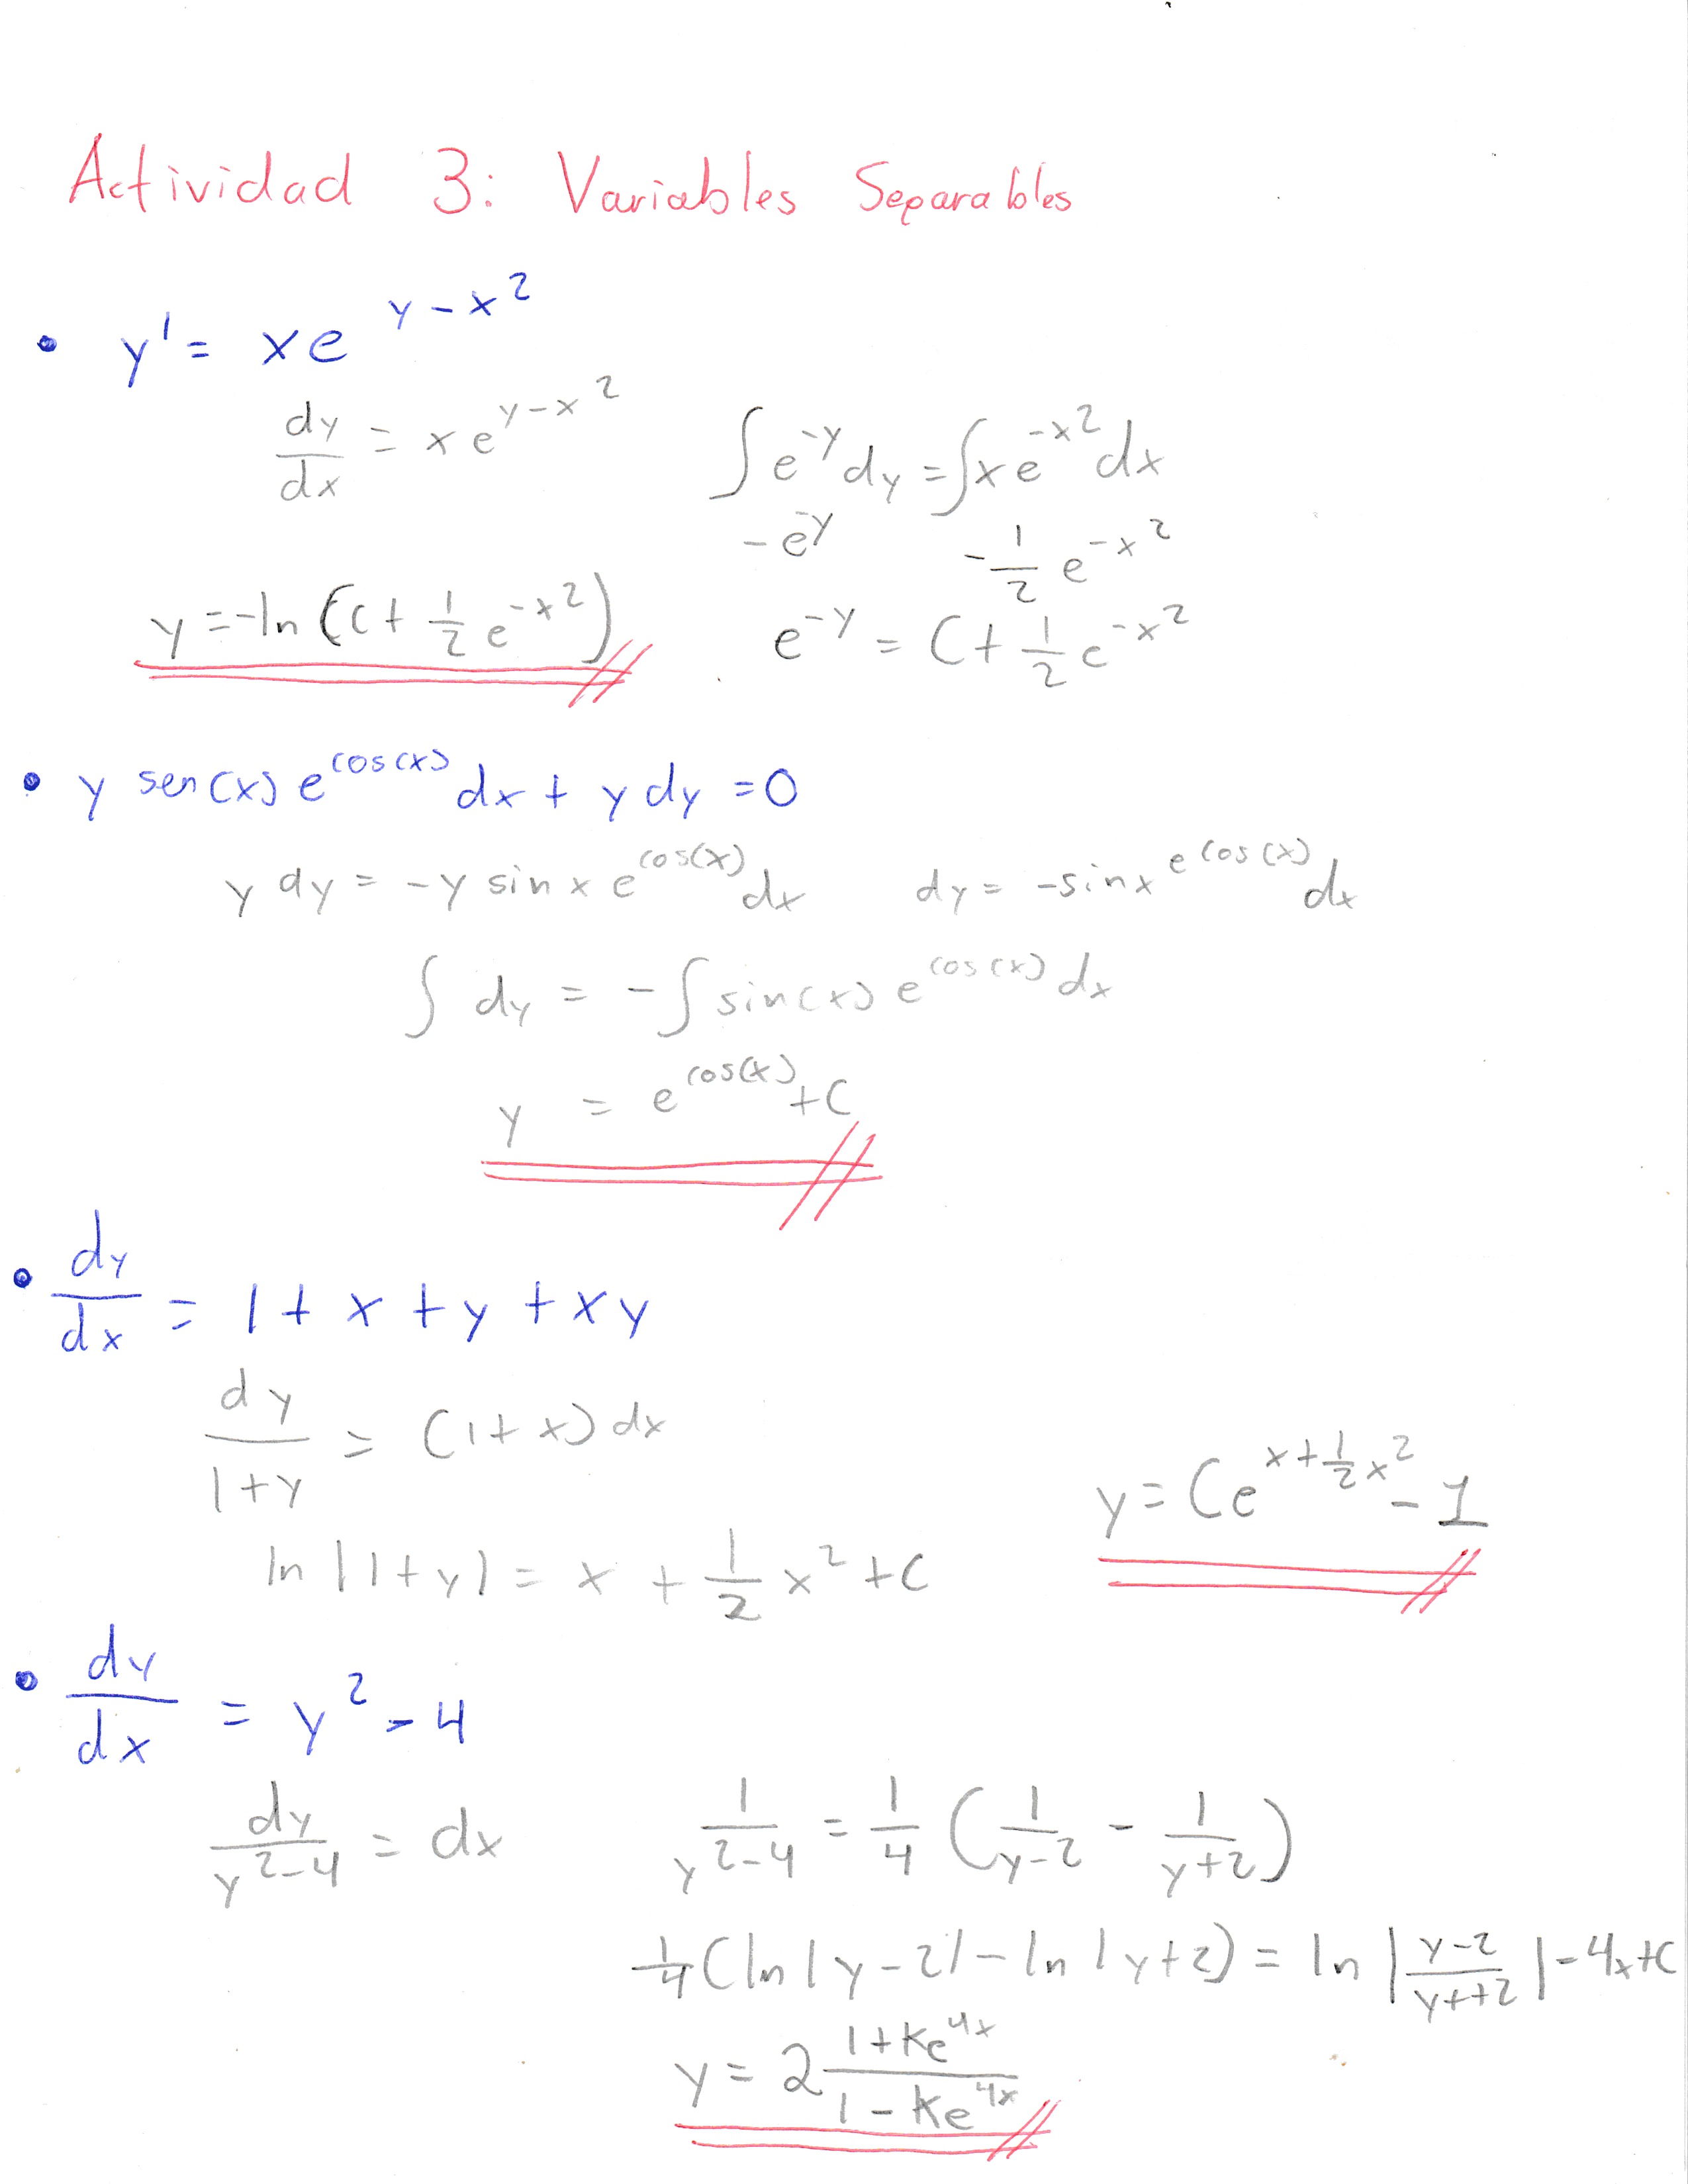 Actividad 3: Variables Separables
• y' = xe^{y-x^2}
dy/dx = xe^{y-x^2}
∫e^{-y}dy = ∫xe^{-x^2}dx
-e^{-y} -1/2 e^{-x^2}
y = -ln(C + 1/2 e^{-x^2})
e^{-y} = C + 1/2 e^{-x^2}
• y sen(x) e^{cos(x)} dx + y dy = 0
y dy = -y sin x e^{cos(x)} dx
dy = -sin x e^{cos(x)} dx
∫ dy = -∫ sin(x) e^{cos(x)} dx
y = e^{cos(x)} + C
• dy/dx = 1 + x + y + xy
dy/(1+y) = (1+x) dx
ln|1+y| = x + 1/2 x^2 + C
y = Ce^{x+1/2 x^2} - 1
• dy/dx = y^2 - 4
dy/(y^2-4) = dx
1/(y^2-4) = 1/4 (1/(y-2) - 1/(y+2))
1/4(ln|y-2| - ln|y+2) = ln|(y-2)/(y++2)| - 4x+C
y = 2 (1+Ke^{4x})/(1-Ke^{4x})